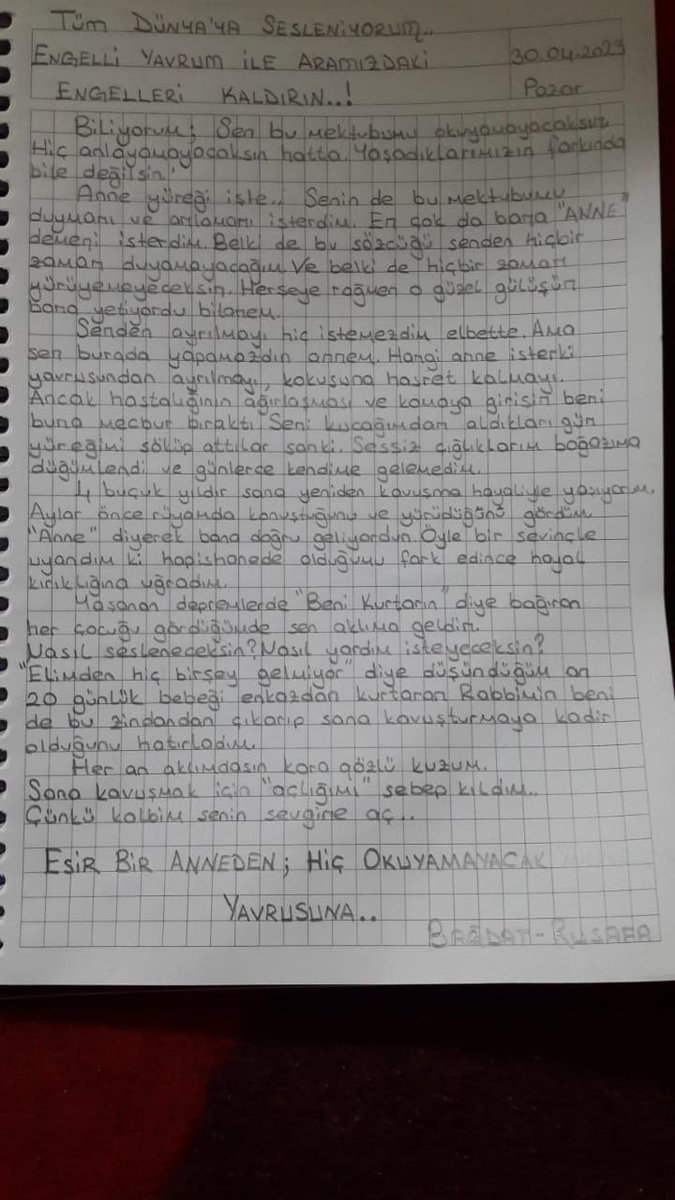 TÜM DÜNYA'YA SESLENİYORUM..
ENGELLİ YAVRUM İLE ARAMIZDAKİ 30.04.2023
ENGELLERİ KALDIRIN..! Pazar
Biliyorum; Sen bu mektubumu okuyamayacaksın.
Hiç anlayamayacaksın hatta. Yaşadıklarımızın farkında
bile değilsin.
Anne yüreği işte.. Senin de bu mektubumu
duymanı ve anlamanı isterdim. En çok da bana "ANNE"
demeni isterdim. Belki de bu sözcüğü senden hiçbir
zaman duyamayacağım. Ve belki de hiçbir zaman
yürüyemeyeceksin. Herşeye rağmen o güzel gülüşün
bana yetiyordu bitanem.
Senden ayrılmayı hiç istemezdim elbette. Ama
sen burada yapamazdın annem. Hangi anne isterki
yavrusundan ayrılmayı, kokusuna hasret kalmayı.
Ancak hastalığının ağırlaşması ve komaya girişin beni
buna mecbur bıraktı. Seni kucağımdan aldıkları gün
yüreğimi söküp attılar sanki. Sessiz çığlıklarım boğazıma
düğümlendi ve günlerce kendime gelemedim.
4 buçuk yıldır sana yeniden kavuşma hayaliyle yaşıyorum.
Aylar önce rüyamda konuştuğunu ve yürüdüğünü gördüm.
"Anne" diyerek bana doğru geliyordun. Öyle bir sevinçle
uyandım ki hapishanede olduğumu fark edince hayal
kırıklığına uğradım.
Yaşanan depremlerde "Beni Kurtarın" diye bağıran
her çocuğu gördüğümde sen aklıma geldin.
Nasıl sesleneceksin? Nasıl yardım isteyeceksin?
"Elimden hiç birşey gelmiyor" diye düşündüğüm an
20 günlük bebeği enkazdan kurtaran Rabbimin beni
de bu zindandan çıkarıp sana kavuşturmaya kadir
olduğunu hatırladım.
Her an aklımdasın kara gözlü kuzum.
Sana kavuşmak için "açlığımı" sebep kıldım..
Çünkü kalbim senin sevgine aç..
ESİR BİR ANNEDEN; HİÇ OKUYAMAYACAK
YAVRUSUNA..
BAĞDAT-RUSAFA